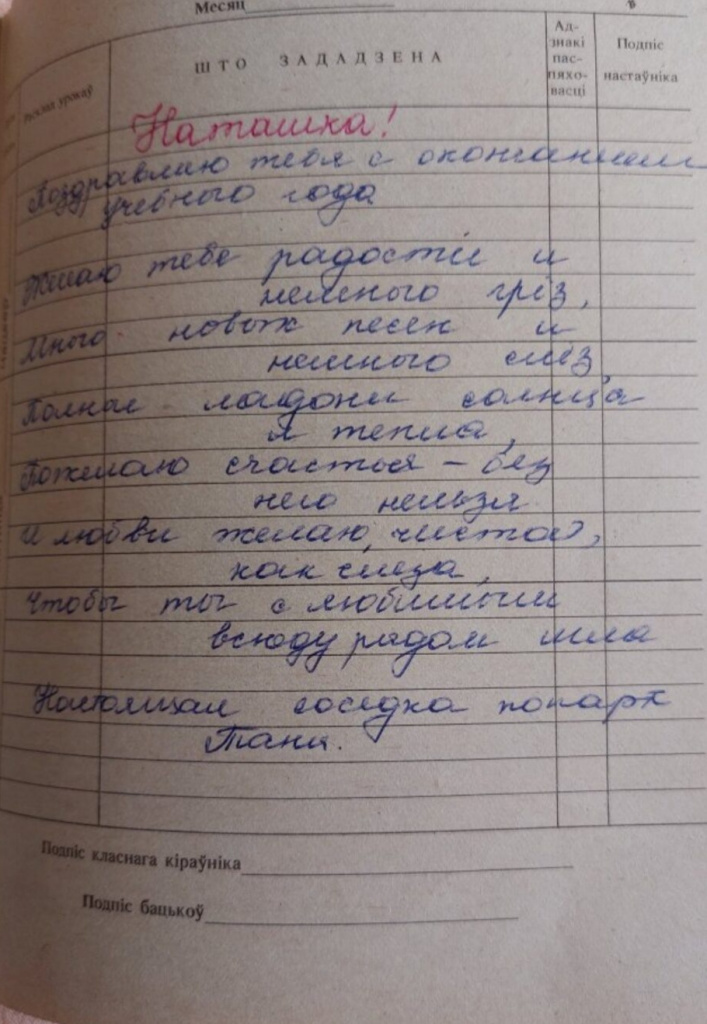 Месяц
ШТО ЗАДАДЗЕНА
Ад-
знакі
пас-
пяхо-
васці
Подпіс
настаўніка
урокаў
Наташка!
Поздравляю тебя с окончанием
учебного года
Желаю тебе радости и
немного грёз,
Много новых песен и
немного слёз,
Полные ладони солнца
и тепла,
Пожелаю счастья – без
него нельзя
И любви желаю, чистой,
как слеза,
Чтобы ты с любимым
всюду рядом шла
Настоящая соседка по парте
Таня.
Подпіс класнага кіраўніка
Подпіс бацькоў